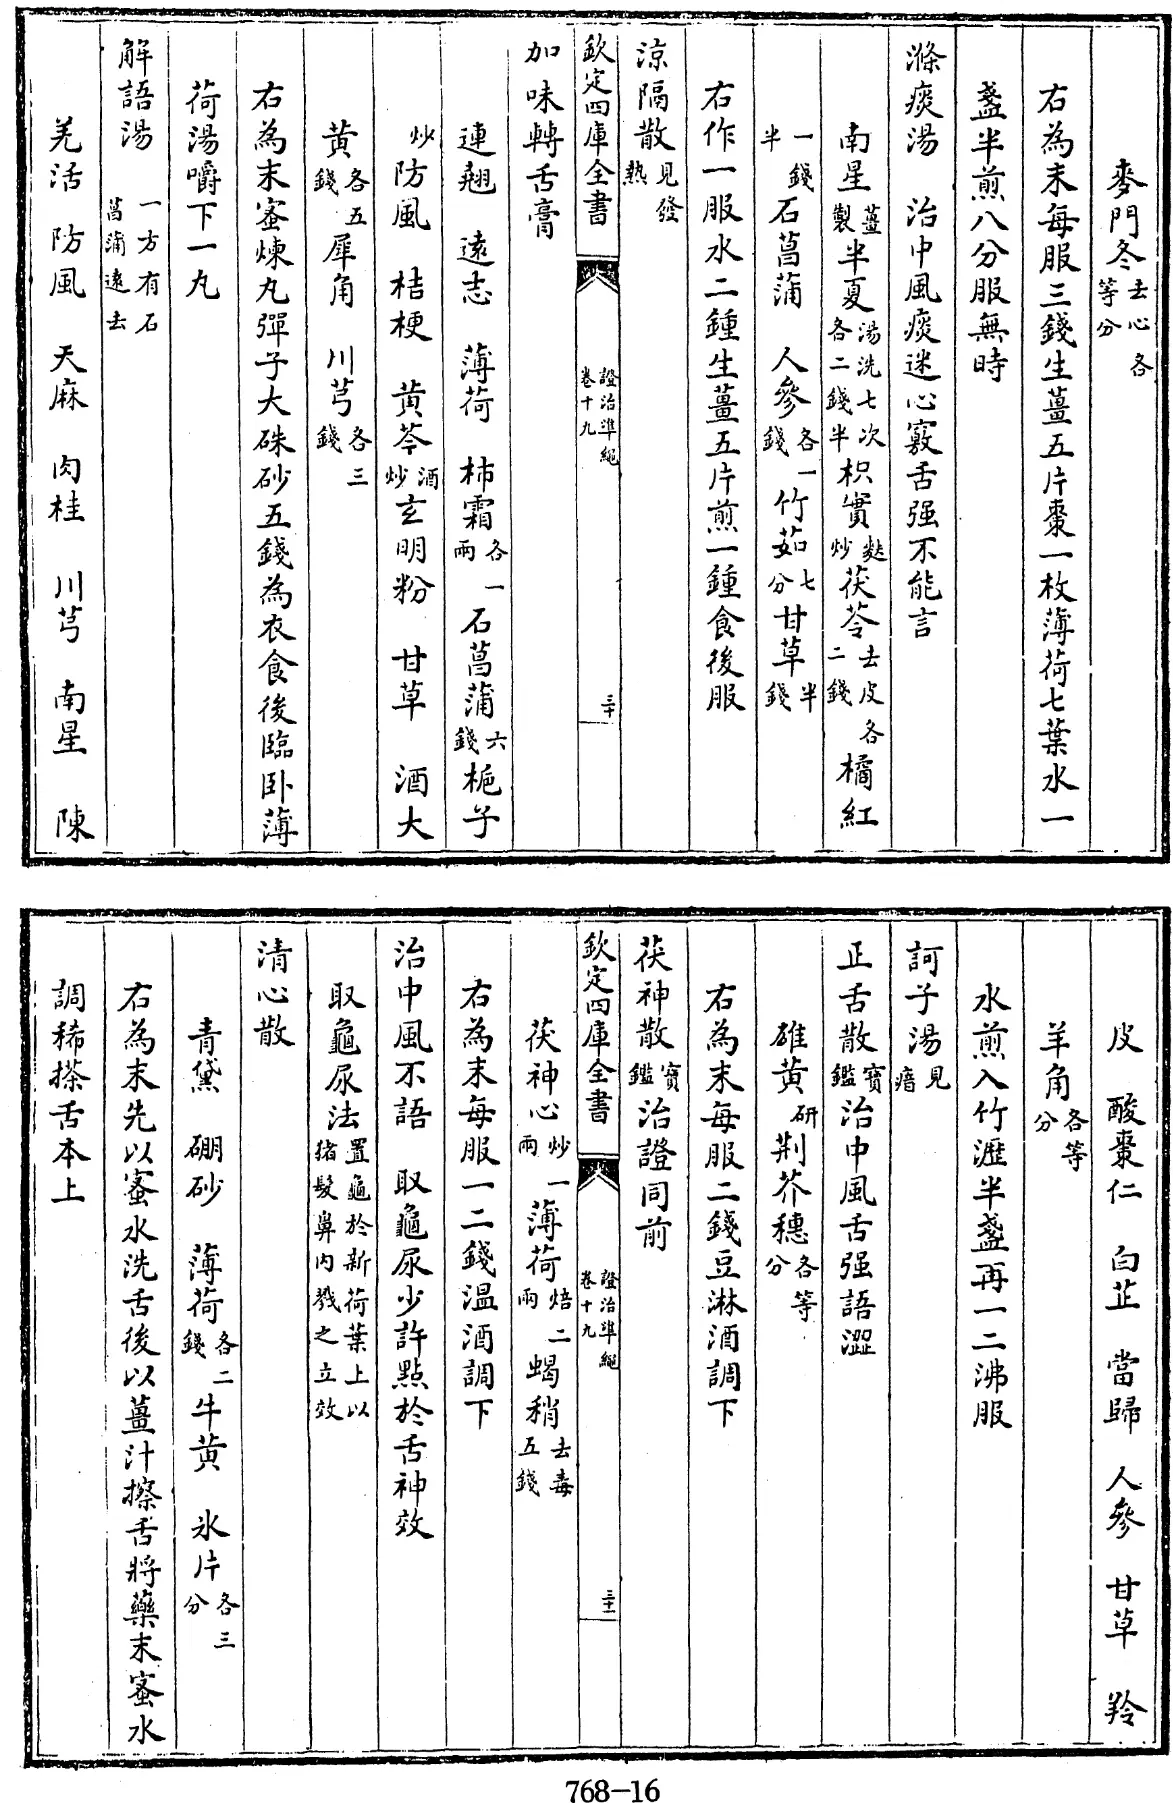 麥門冬去心各等分
右為末每服三錢生薑五片棗一枚薄荷七葉水一
盞半煎八分服無時
滌痰湯　治中風痰迷心竅舌强不能言
南星薑製半夏湯洗七次各二錢半枳實麩炒茯苓去皮各二錢橘紅
一錢半石菖蒲　人參各一錢竹茹七分甘草半錢
右作一服水二鍾生薑五片煎一鍾食後服
涼隔散見發熱
欽定四庫全書　證治準繩卷十九　三十
加味轉舌膏
連翹　遠志　薄荷　柿霜各一兩石菖蒲六錢梔子
炒防風　桔梗　黄芩酒炒玄明粉　甘草　酒大
黄各五錢犀角　川芎各三錢
右為末蜜煉丸彈子大硃砂五錢為衣食後臨卧薄
荷湯嚼下一丸
解語湯　一方有石菖蒲遠去
羌活　防風　天麻　肉桂　川芎　南星　陳
皮　酸棗仁　白芷　當歸　人參　甘草　羚
羊角各等分
水煎入竹瀝半盞再一二沸服
訶子湯見瘖
正舌散寶鑑治中風舌强語澀
雄黄研荆芥穗各等分
右為末每服二錢豆淋酒調下
茯神散寶鑑治證同前
欽定四庫全書　證治準繩卷十九　三十一
茯神心炒一兩薄荷焙二兩蝎稍去毒五錢
右為末每服一二錢温酒調下
治中風不語　取龜尿少許點於舌神效
取龜尿法置龜於新荷葉上以猪鬃鼻内戮之立效
清心散
青黛　硼砂　薄荷各二錢牛黄　氷片各三分
右為末先以蜜水洗舌後以薑汁擦舌將藥末蜜水
調稀搽舌本上
768-16